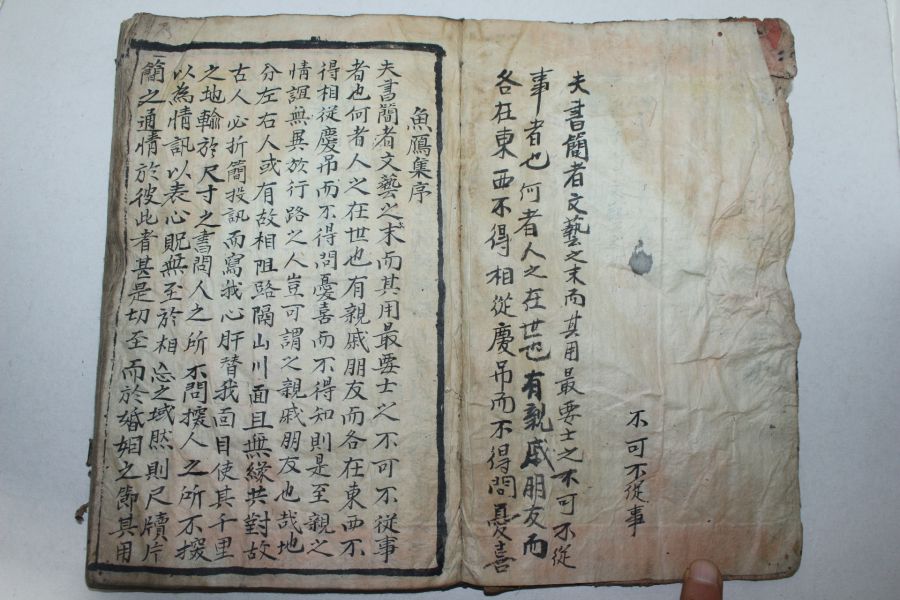 不可不從事
夫書簡者文藝之末而其用最要士之不可不從
事者也何者人之在世也有親戚朋友而
各在東西不得相從慶吊而不得問憂喜
魚鴈集序
夫書簡者文藝之末而其用最要士之不可不從事
者也何者人之在世也有親戚朋友而各在東西不
得相從慶吊而不得問憂喜而不得知則是至親之
情誼無異於行路之人豈可謂之親戚朋友也哉地
分左右人或有故相阻路隔山川面且無緣共對故
古人必折簡投訊而寫我心肝替我面目使其千里
之地輸於尺寸之書問人之所不問人之所不
以為情訊以表心貺無至於相忘之域然則尺牘片
簡之通情於彼此者甚是切至而於婚姻之節其用